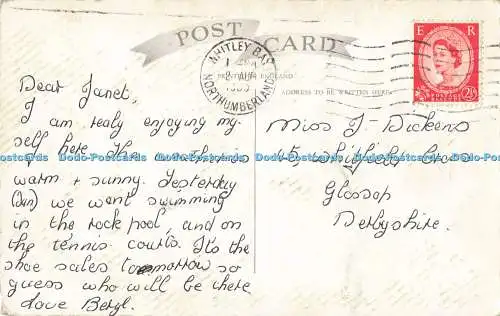 POST CARD
WHITLEY BAY
NORTHUMBERLAND
E R
POSTAGE REVENUE
2½D
PRINTED IN ENGLAND
ADDRESS TO BE WRITTEN HERE
Dear Janet,
I am realy enjoying my-
self here. The weather is
warm + sunny. Yesterday
(Sun) we went swimming
in the rock pool, and on
the tennis courts. It's the
shoe sales tomorrow so
guess who will be there
Love Beryl.
Miss J Dickens
45 Whitfield Cross
Glossop
Derbyshire.
Dodo-Postcards Dodo-Postcards Dodo-Postcards Dodo-Postcards Dodo-Postcards